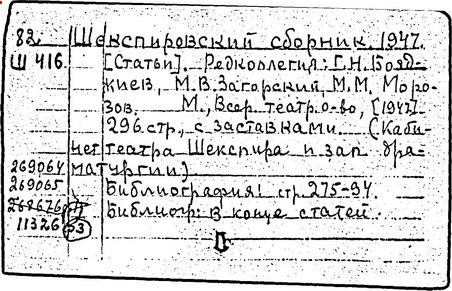 82 Шекспировский сборник. 1947.
Ш 416. [Статьи]. Редколлегия: Г.Н. Бояд-
жиев, М.В. Загорский, М.М. Моро-
зов. М., Всер. театр. о-во, [1947].
296 стр., с заставками. (Каби-
нет театра Шекспира и зап дра-
269064 матургии)
269065 Библиография: стр. 275-94.
Библиогр: в конце статей.
11326 53